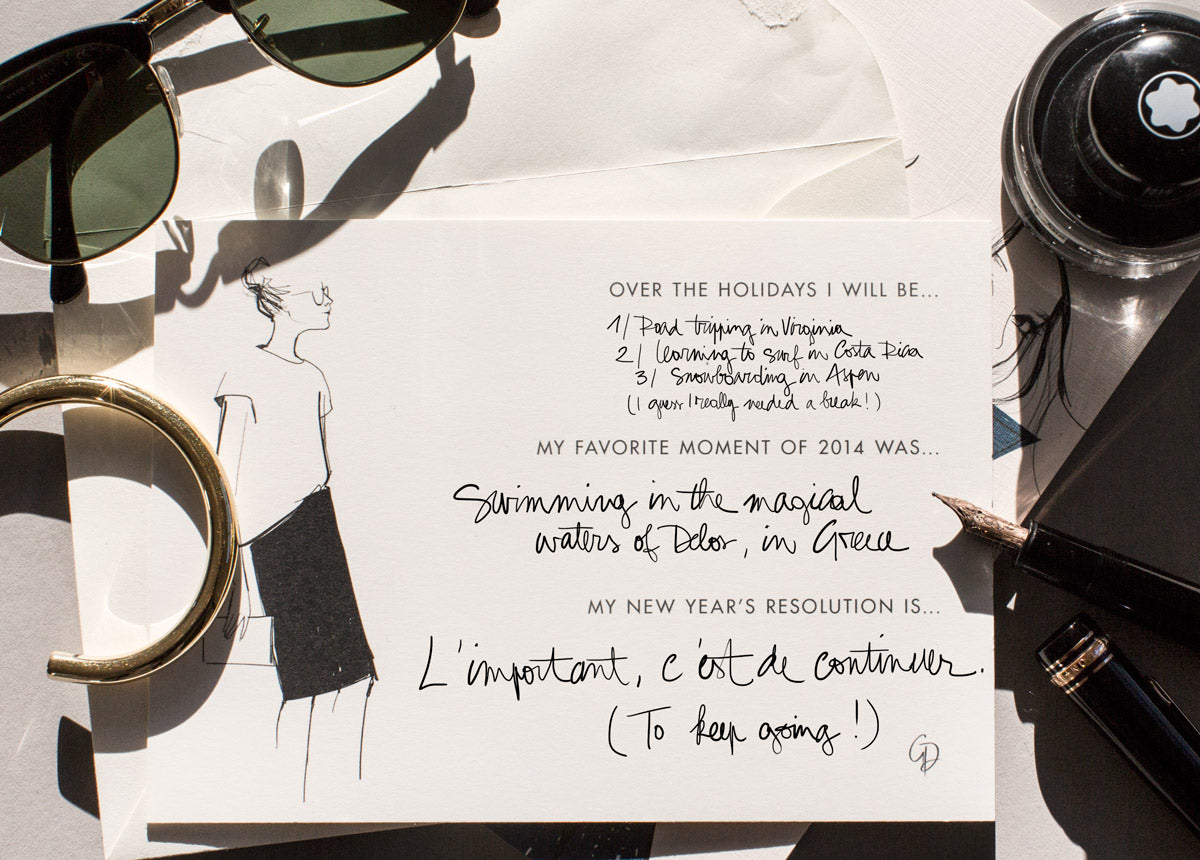 OVER THE HOLIDAYS I WILL BE...
1/ Road tripping in Virginia
2/ learning to surf in Costa Rica
3/ Snowboarding in Aspen
(I guess I really needed a break!)
MY FAVORITE MOMENT OF 2014 WAS...
Swimming in the magical
waters of Delos, in Greece
MY NEW YEAR'S RESOLUTION IS...
L'important, c'est de continuer.
(To keep going!)
GD